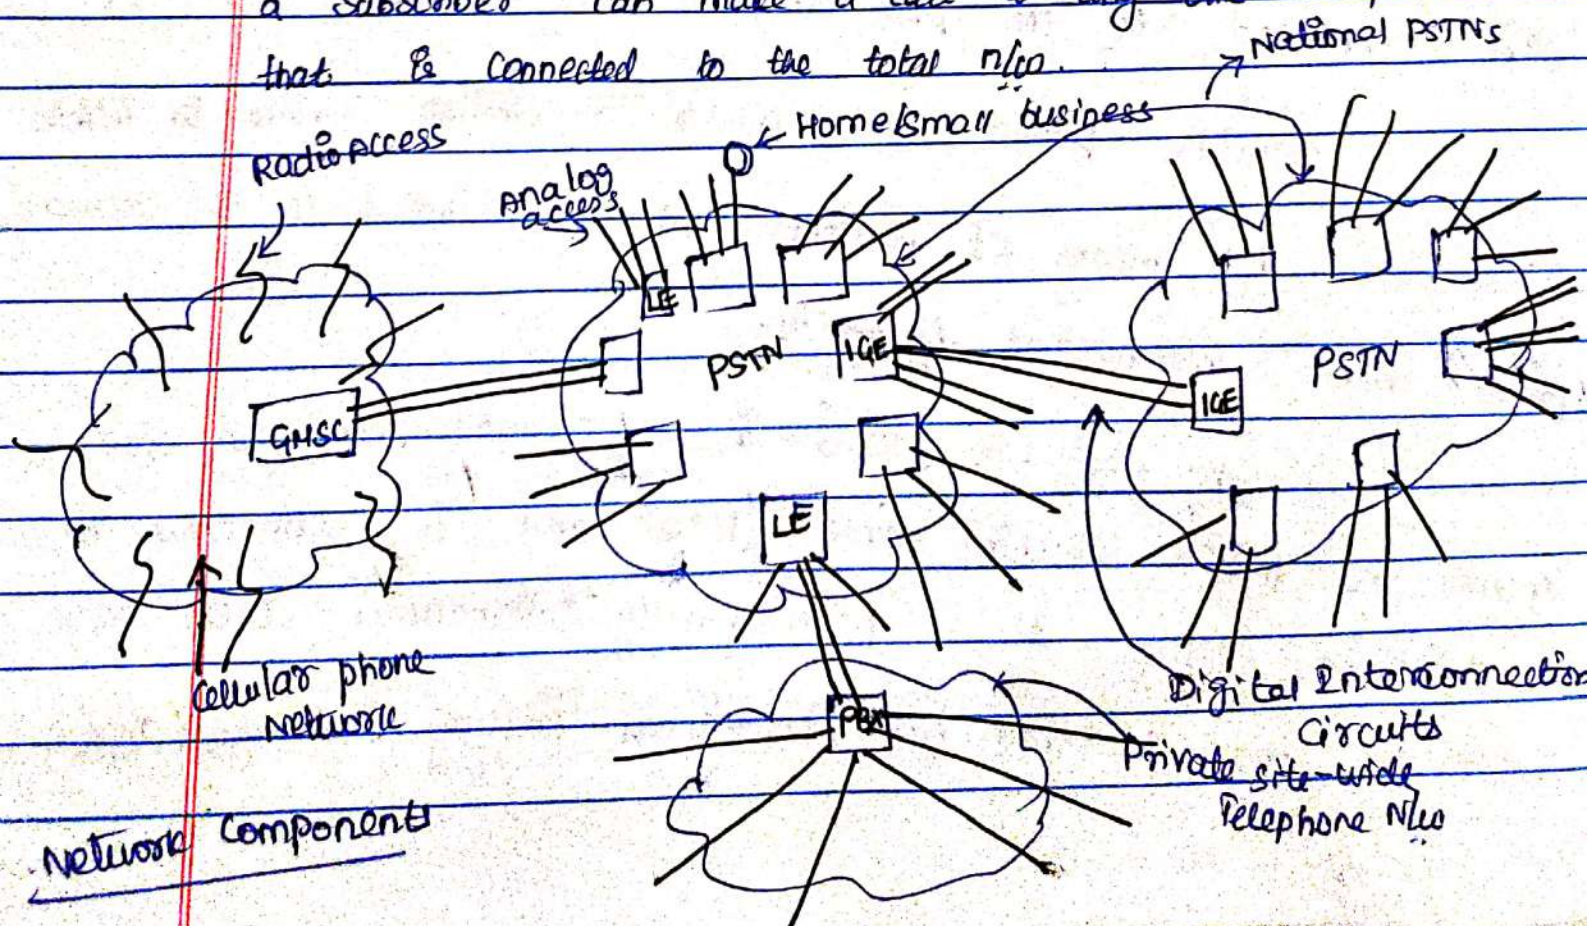 a subscriber can make a call to any
that is connected to the total n/w.
National PSTNs
Home/small business
Radio Access
Analog
access
LE
PSTN
IGE
PSTN
IGE
GMSC
LE
Cellular phone
Network
PBX
Digital Interconnection
Circuits
Private site-wide
Telephone N/w
Network Components